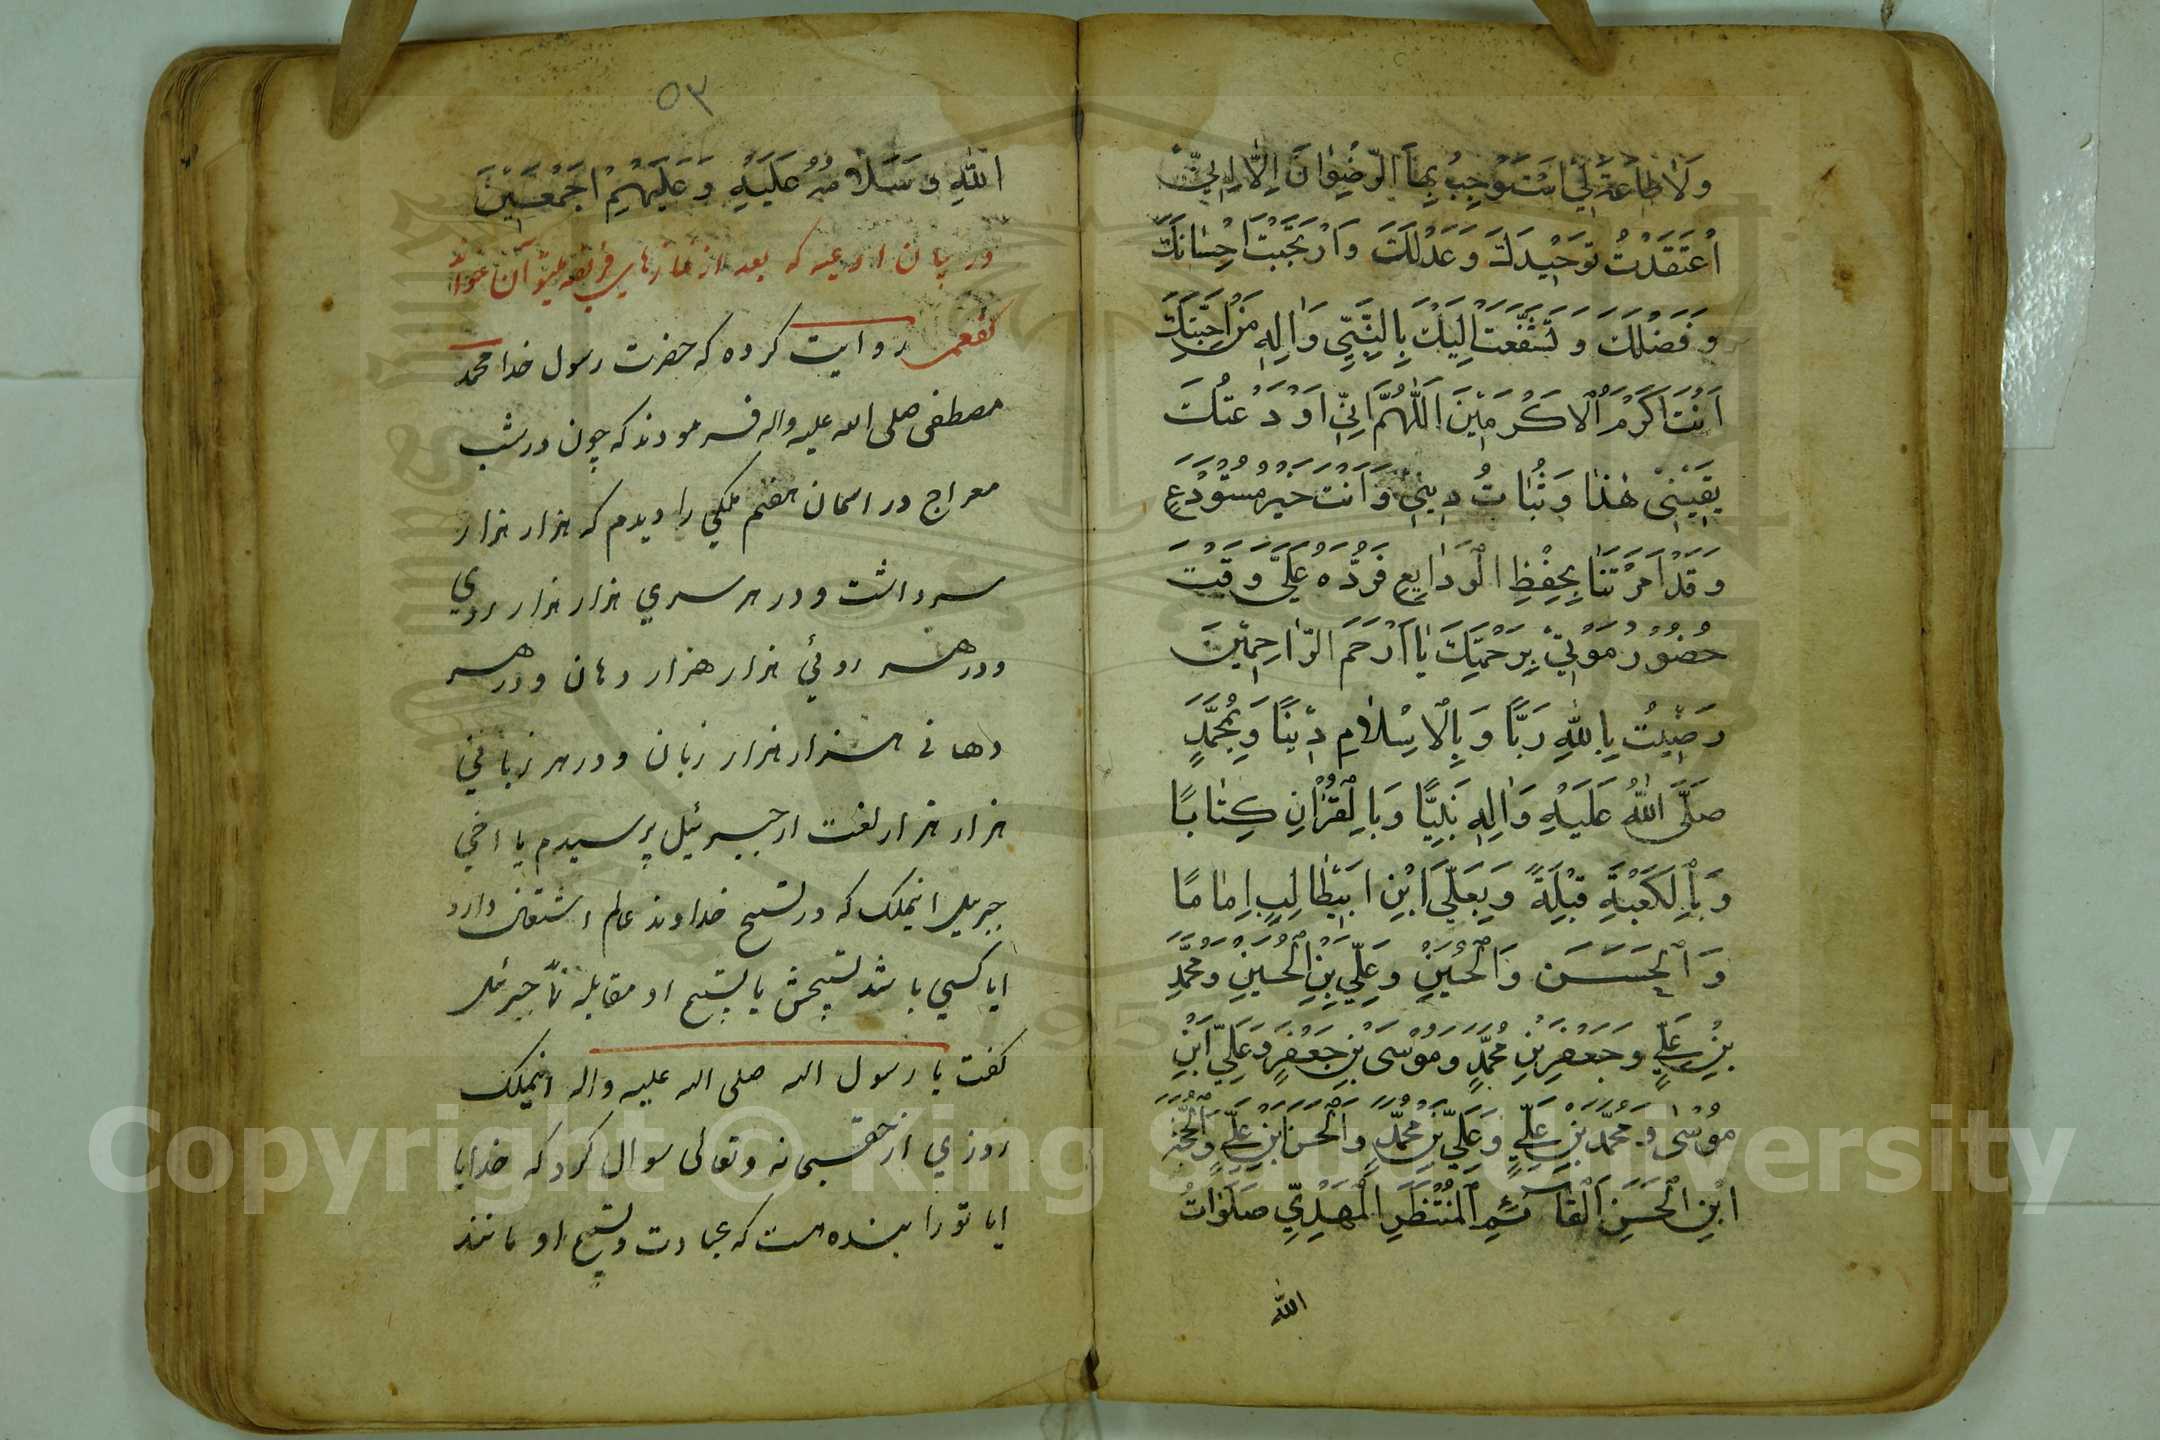 وَلَا طَاعَةَ لِي اَسْتَوْجِبُ بِهَا الرِّضْوَانَ اِلَّا اِنِّي
اعْتَقَدْتُ تَوْحِيْدَكَ وَعَدْلَكَ وَارْتَجَيْتُ اِحْسَانَكَ
وَفَضْلَكَ وَتَشَفَّعْتُ اِلَيْكَ بِالنَّبِيِّ وَاٰلِهِ مَنْ اَحِبَّتِكَ
اَنْتَ اَكْرَمُ الْاَكْرَمِيْنَ اَللّٰهُمَّ اِنِّي اَوْدَعْتُكَ
يَقِيْنِيْ هٰذَا وَثُبَاتُ دِيْنِيْ وَاَنْتَ خَيْرُ مُسْتَوْدَعٍ
وَقَدْ اَمَرْتَنَا بِحِفْظِ الْوَدَايِعِ فَرُدَّهُ عَلَيَّ وَقْتَ
حُضُوْرِ مَوْتِيْ بِرَحْمَتِكَ يَا اَرْحَمَ الرَّاحِمِيْنَ
رَضِيْتُ بِاللّٰهِ رَبًّا وَبِالْاِسْلَامِ دِيْنًا وَبِمُحَمَّدٍ
صَلَّى اللّٰهُ عَلَيْهِ وَاٰلِهِ نَبِيًّا وَبِالْقُرْاٰنِ كِتَابًا
وَبِالْكَعْبَةِ قِبْلَةً وَبِعَلِيِّ ابْنِ ابَيْطَالِبٍ اِمَامًا
وَالْحَسَنِ وَالْحُسَيْنِ وَعَلِيِّ بْنِ الْحُسَيْنِ وَمُحَمَّدِ
بْنِ عَلِيٍّ وَجَعْفَرِ بْنِ مُحَمَّدٍ وَمُوْسَى بْنِ جَعْفَرٍ وَعَلِيِّ ابْنِ
مُوْسٰى وَمُحَمَّدِ بْنِ عَلِيٍّ وَعَلِيِّ بْنِ مُحَمَّدٍ وَالْحَسَنِ ابْنِ عَلِيٍّ وَالْحُجَّةِ
ابْنِ الْحَسَنِ الْقَائِمِ الْمُنْتَظَرِ الْمَهْدِيِّ صَلَوَاتُ
اللّٰه
٥٣
اللّٰهِ وَسَلَامُهُ عَلَيْهِ وَعَلَيْهِمْ اَجْمَعِيْنَ
در بيان ادعيه كه بعد از نمازهاي فريضه ميتوان خواند
كفعمى روايت كرده كه حضرت رسول خدا محمد
مصطفى صلى الله عليه واله فرمودند كه چون در شب
معراج در اسمان هفتم ملكي را ديدم كه هزار هزار
سر داشت و در هر سري هزار هزار روي
و در هر روئي هزار هزار دهان و در هر
دهانى هزار هزار زبان و در هر زباني
هزار هزار لغت از جبرئيل پرسيدم يا اخي
جبرئيل اينملك كه در تسبيح خداوند عالم اشتغال دارد
ايا كسي باشد تسبيحش با تسبيح او مقابله نما جبرئيل
گفت يا رسول الله صلى الله عليه واله اينملك
روزي از حقسبحانه وتعالى سوال كرد كه خدايا
ايا تو را بنده هست كه عبادت و تسبيح او مانند
Copyright © King Saud University